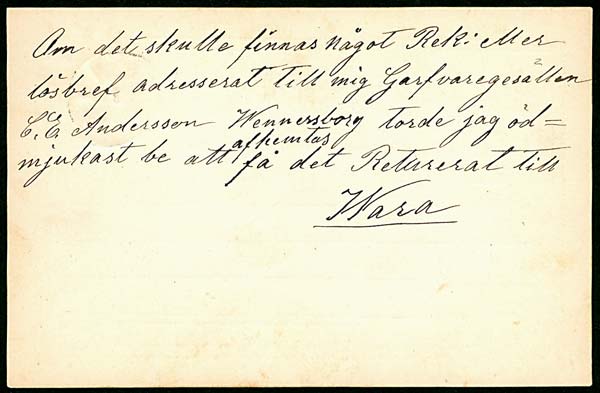 Om det skulle finnas något Rek: eller
lösbref adresserat till mig Garfvaregesällen
C. A. Andersson Wennersborg torde jag öd=
afhemtas
mjukast be att få det Returerat till
Wara